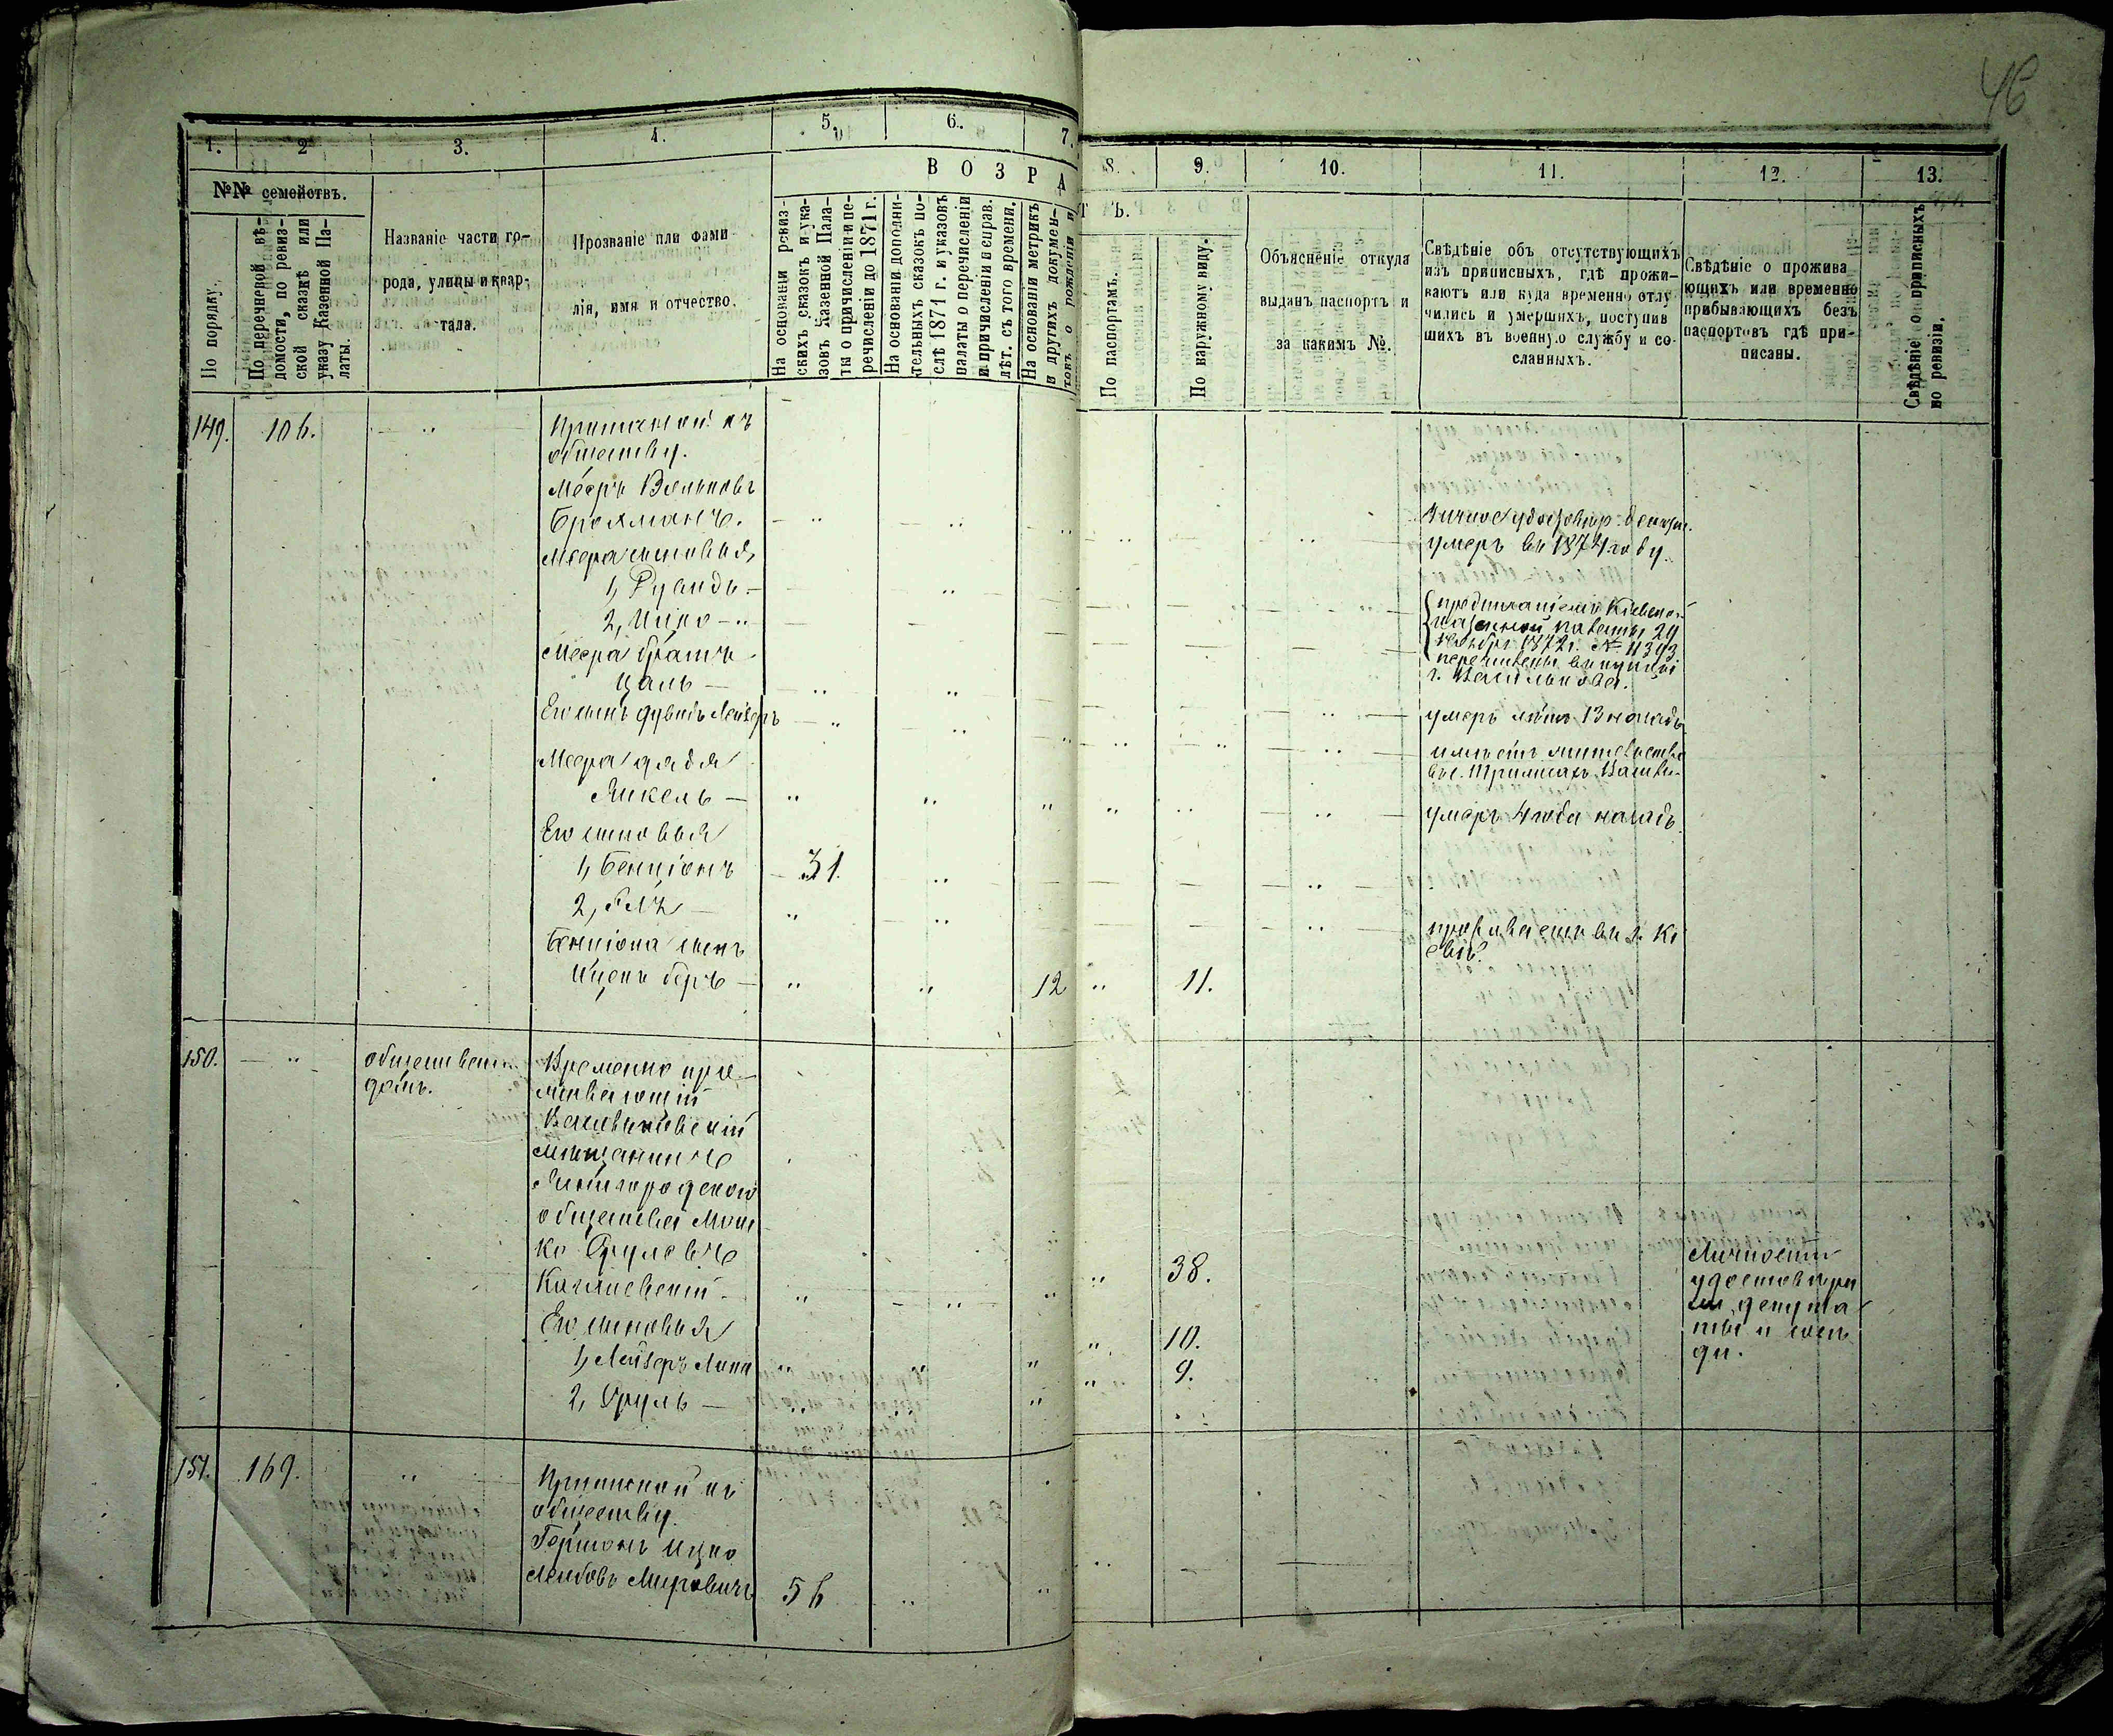 46
1.
2
3.
4.
5.
6.
7.
8.
9.
10.
11.
12.
13.
№№ семействъ.
ВОЗРА
ТЪ.
По порядку.
По перечневой вѣ-
домости, по ревиз-
ской сказкѣ или
указу Казенной Па-
латы.
Названіе части го-
рода, улицы и квар-
тала.
Прозваніе или фами
лія, имя и отчество.
На основаніи ревиз-
скихъ сказокъ и ука-
зовъ Казенной Пала-
ты о причисленіи и пе-
речисленіи до 1871 г.
На основаніи дополни-
тельныхъ сказокъ по-
слѣ 1871 г. и указовъ
палаты о перечисленіи
и причисленіи и справ.
лѣт. съ того времени.
На основаніи метрикъ
и другихъ докумен-
товъ о рожденіи и
По паспортамъ.
По наружному виду.
Объясненіе откуда
выданъ паспортъ и
за какимъ №.
Свѣдѣніе объ отсутствующихъ
изъ приписныхъ, гдѣ прожи-
ваютъ или куда временно отлу
чились и умершихъ, поступив
шихъ въ военную службу и со-
сланныхъ.
Свѣдѣніе о прожива
ющихъ или временно
прибывающихъ безъ
паспортовъ гдѣ при-
писаны.
Свѣдѣніе о приписныхъ
по ревизіи.
149. 106.
Приписной къ
обществу.
Мееръ Волковъ
Броxманъ.
умеръ въ 1874 году.
Меера сыновья,
1,
2, Ицко
Меера братъ
предписаніемъ Кіевской
казенной палаты 29
1872 г. № 11393
перечислены въ купцы
г. Василькова.
Его сынъ Дувидъ Лейзеръ
умеръ лѣтъ 13 назадъ
Меера дядя
имѣетъ жительство
въ с. Трилѣсахъ
Янкель
умеръ 4 года назадъ.
Его сыновья
1, Бенціонъ 31.
2,
проживаетъ въ г. Кі
евѣ.
Бенціона сынъ
Ицекъ Беръ 12 11.
150.
обществен
домъ.
Временно про-
живающій
Васильковскій
мѣщанинъ
общества Мош
ко Сруловъ
38.
Личность
удостовѣри
ли депута
ты и сосѣ
ди.
Его сыновья
1, Лейзеръ 10.
2, Сруль 9.
151. 169.
Приписной къ
обществу.
Гершонъ Ицко
Лейбовъ Мировичъ 56